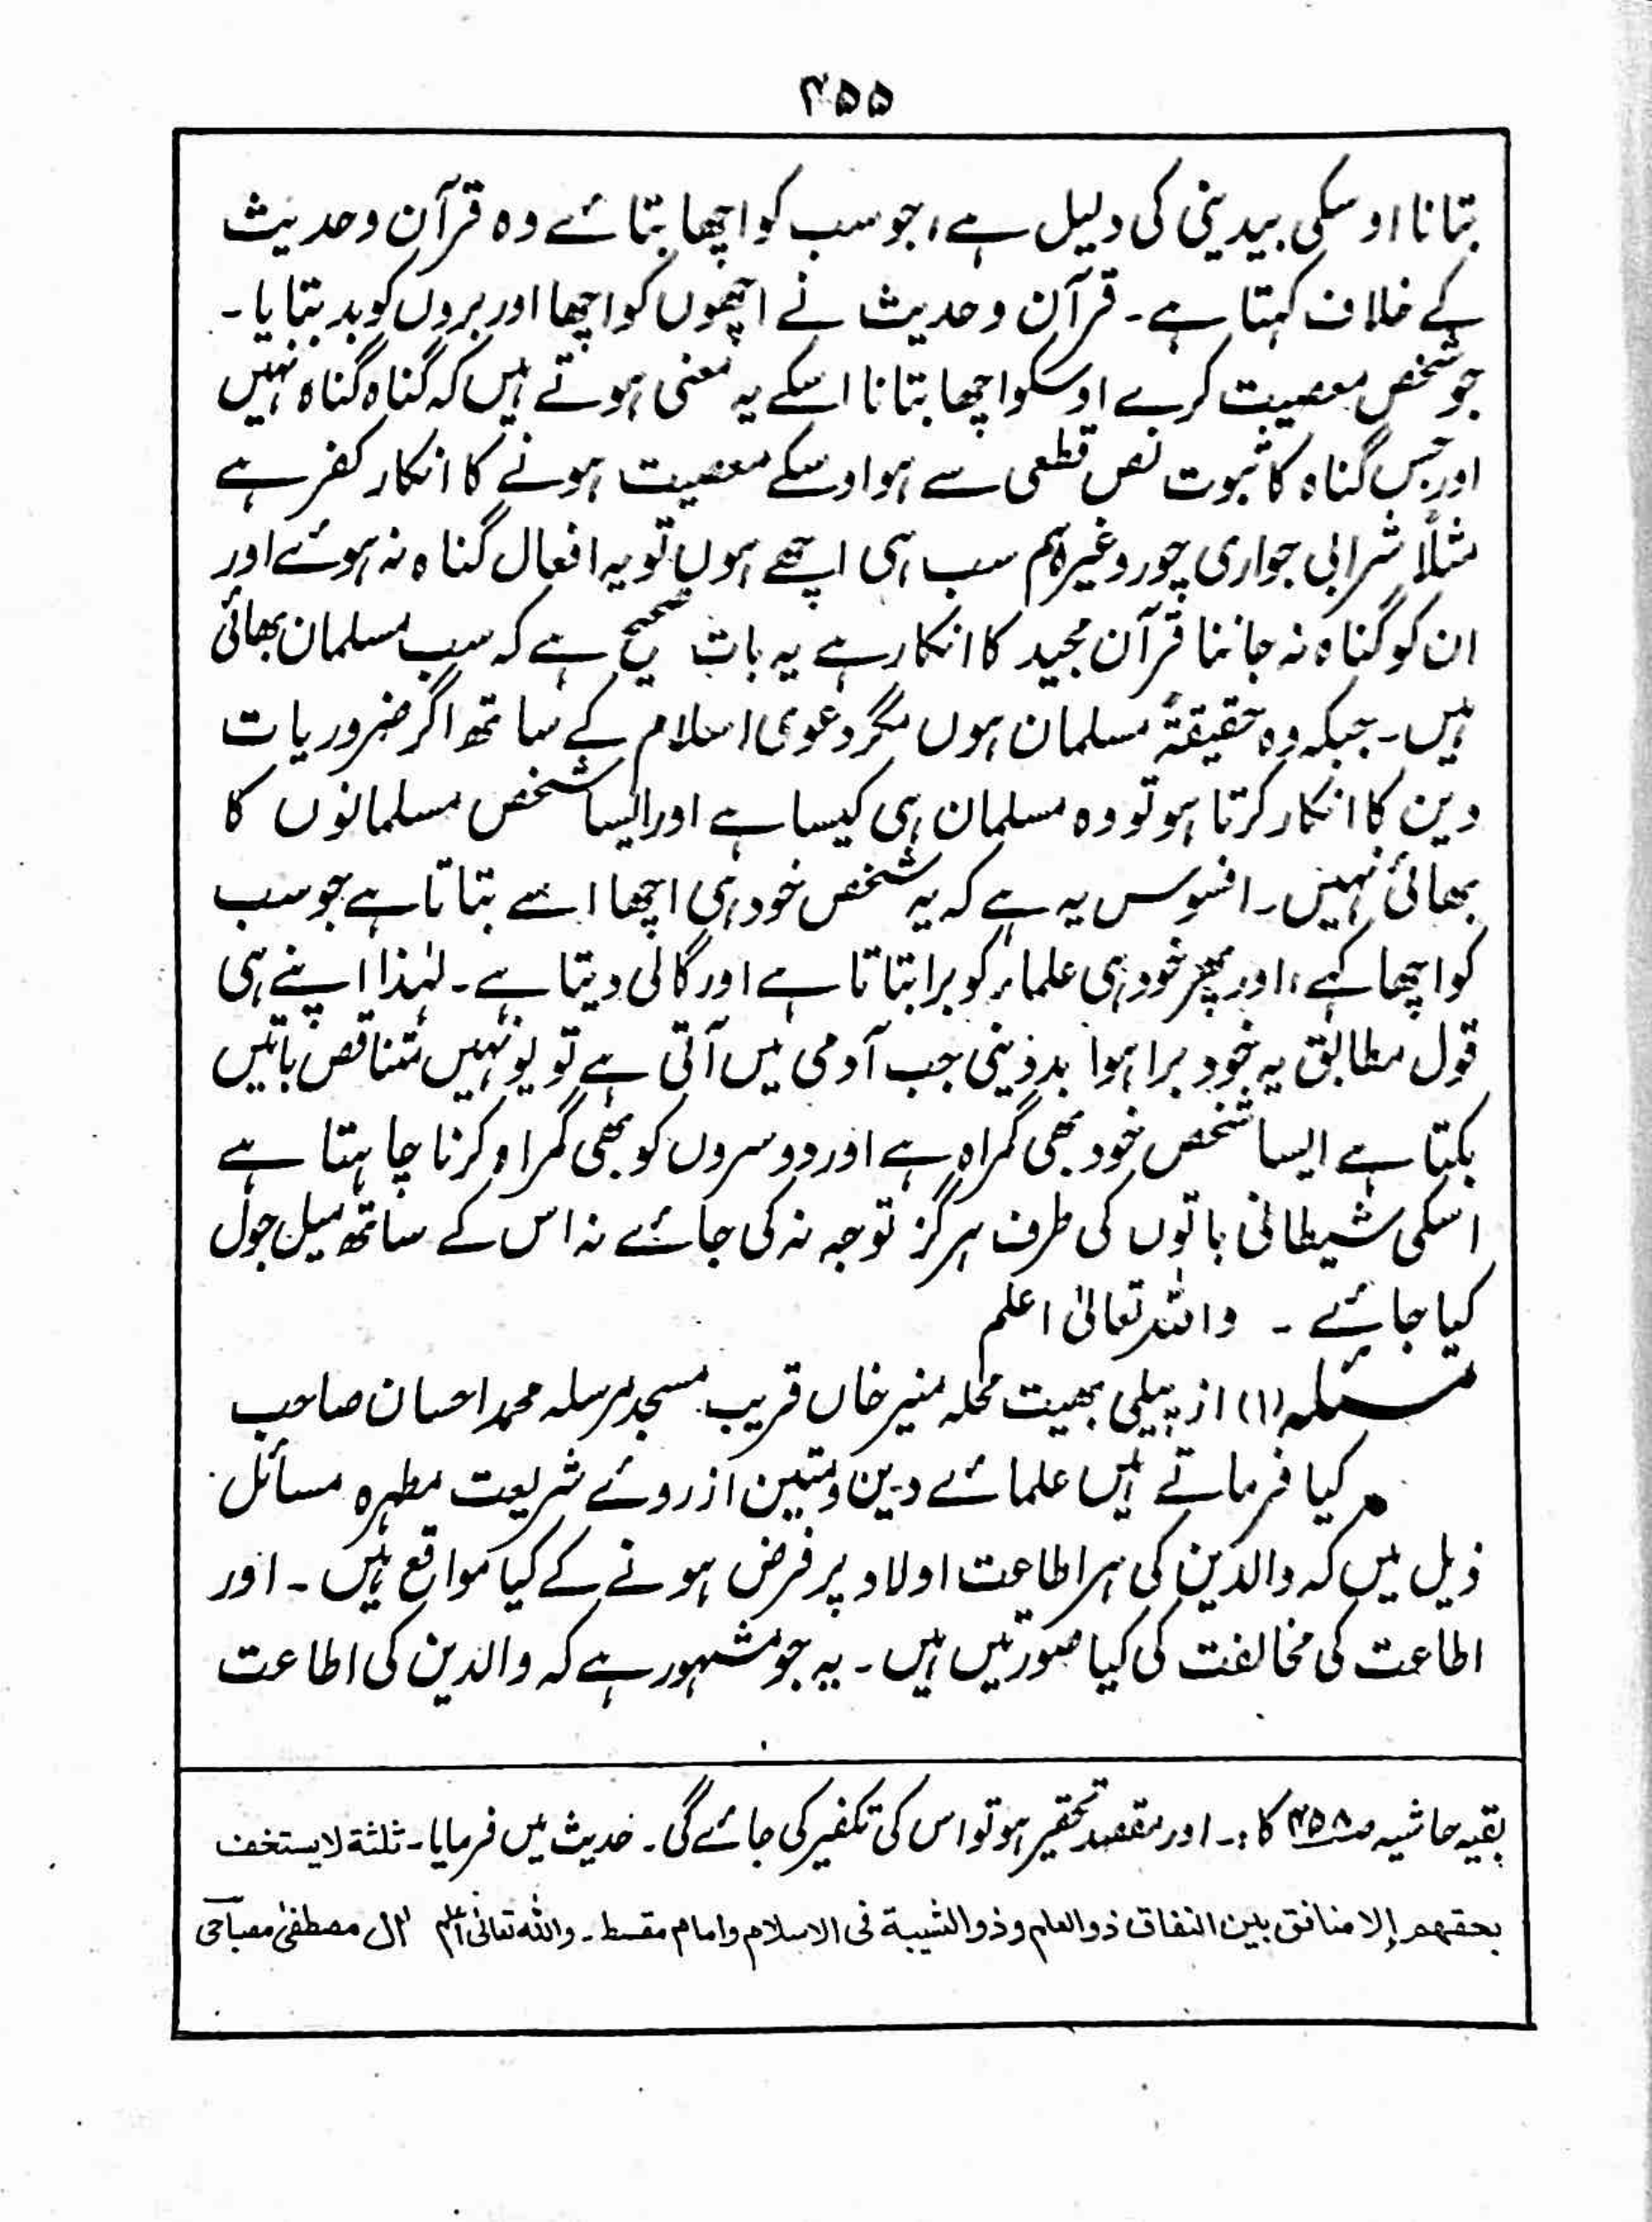 ۴۵۵
بتانا اوسکی بیدینی کی دلیل ہے، جو سب کو اچھا بتائے وہ قرآن وحدیث
کے خلاف کہتا ہے۔ قرآن وحدیث نے اچھوں کو اچھا اور بروں کو بد بتایا۔
جو شخص معصیت کرے اوسکو اچھا بتانا اسکے یہ معنی ہوتے ہیں کہ گناہ گناہ نہیں
اور جس گناہ کا ثبوت نص قطعی سے ہو اوسکے معصیت ہونے کا انکار کفر ہے
مثلاً شرابی جواری چور وغیرہم سب ہی اچھے ہوں تو یہ افعال گناہ نہ ہوئے اور
ان کو گناہ نہ جاننا قرآن مجید کا انکار ہے یہ بات صحیح ہے کہ سب مسلمان بھائی
ہیں۔ جبکہ وہ حقیقۃً مسلمان ہوں مگر دعوی اسلام کے ساتھ اگر ضروریات
دین کا انکار کرتا ہو تو وہ مسلمان ہی کیسا ہے اور ایسا شخص مسلمانوں کا
بھائی نہیں۔ افسوس یہ ہے کہ یہ شخص خود ہی اچھا اسے بتاتا ہے جو سب
کو اچھا کہے، اور پھر خود ہی علماء کو برا بتاتا ہے اور گالی دیتا ہے۔ لہٰذا اپنے ہی
قول مطابق یہ خود برا ہوا بدذینی جب آدمی میں آتی ہے تو یونہیں متناقص باتیں
بکتا ہے ایسا شخص خود بھی گمراہ ہے اور دوسروں کو بھی گمراہ کرنا چاہتا ہے
اسکی شیطانی باتوں کی طرف ہرگز توجہ نہ کی جائے نہ اس کے ساتھ میل جول
کیا جائے ۔ واللہ تعالیٰ اعلم
مسئلہ (۱) از پیلی بھیت محلہ منیر خاں قریب مسجد مرسلہ محمد احسان صاحب
کیا فرماتے ہیں علمائے دین ومتین ازروئے شریعت مطہرہ مسائل
ذیل میں کہ والدین کی ہر اطاعت اولاد پر فرض ہونے کے کیا مواقع ہیں۔ اور
اطاعت کی مخالفت کی کیا صورتیں ہیں۔ یہ جو مشہور ہے کہ والدین کی اطاعت
بقیہ حاشیہ صـ۴۵۸ کا:۔ اور مقصد تحقیر ہو تو اس کی تکفیر کی جائے گی۔ حدیث میں فرمایا۔ ثلثة لا یستخف
بحقھم إلا منافق بین النفاق ذو العلم وذو الشیبة فی الاسلام وامام مقسط۔ واللہ تعالیٰ اعلم آل مصطفیٰ مصباحی